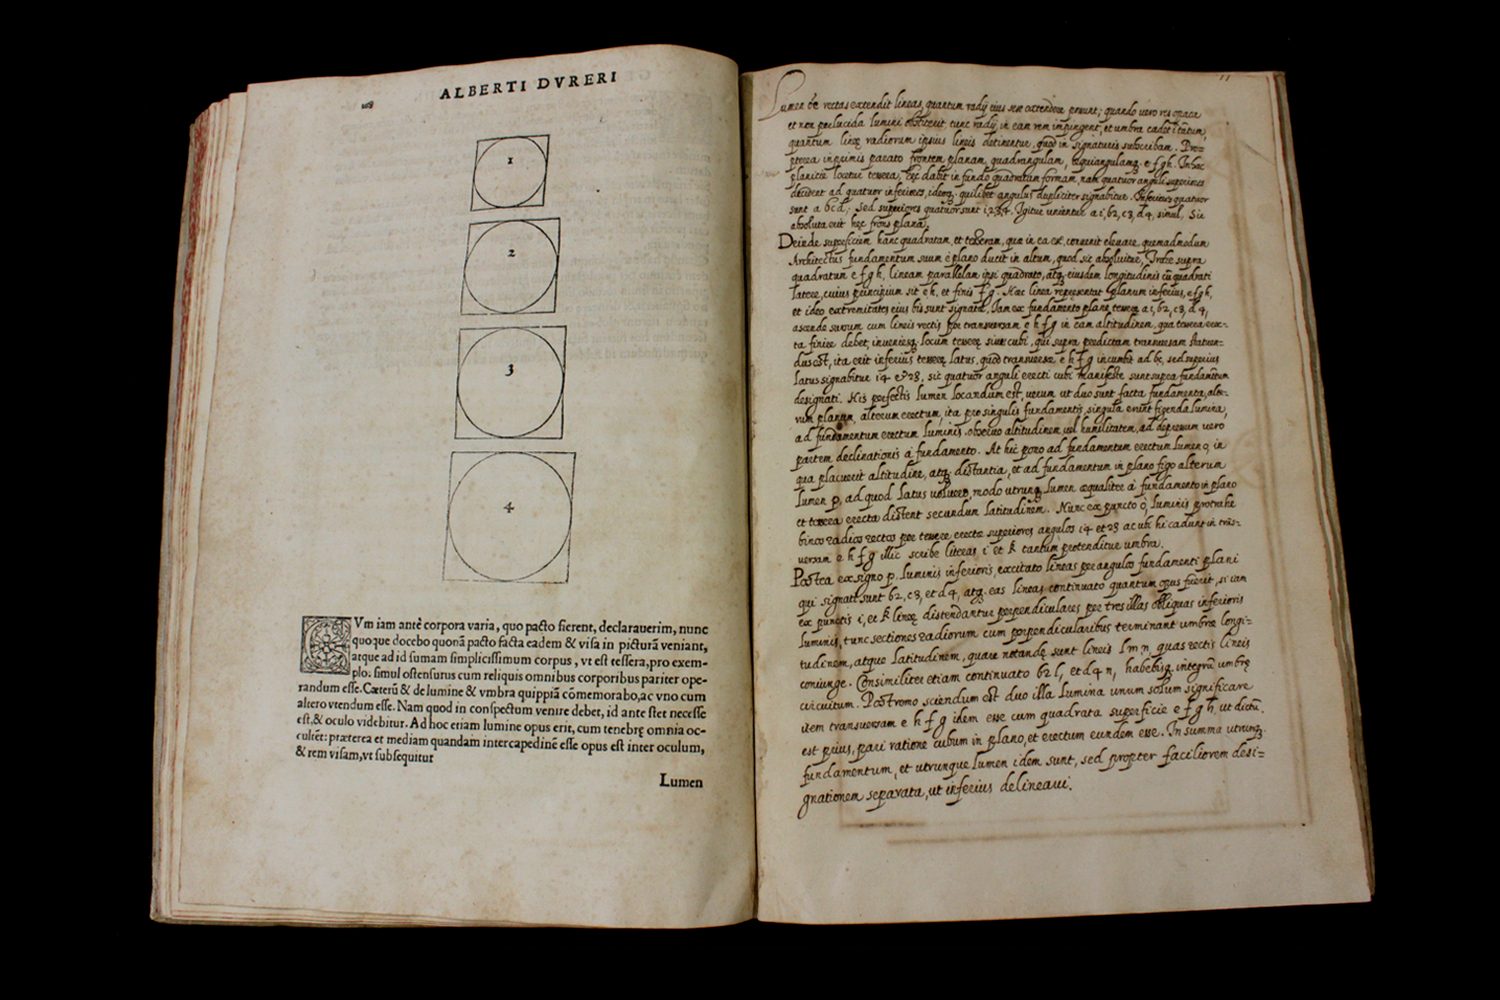 ALBERTI DVRERI
1
2
3
4
CVm iam antè corpora varia, quo pacto fierent, declarauerim, nunc
quoque docebo quonā pacto facta eadem & visa in picturā veniant,
atque ad id sumam simplicissimum corpus, vt est tessera, pro exem-
plo. simul ostensurus cum reliquis omnibus corporibus pariter ope-
randum esse. Cæterū & de lumine & vmbra quippiā cōmemorabo, ac vno cum
altero vtendum esse. Nam quod in conspectum venire debet, id ante stet necesse
est, & oculo videbitur. Ad hoc etiam lumine opus erit, cum tenebrę omnia oc-
culēt: præterea et mediam quandam intercapedinē esse opus est inter oculum,
& rem visam, vt subsequitur
Lumen
11
Lumen rectas extendit lineas, quantum radij eius sese extendere possunt; quando vero res opaca
et non perlucida lumini obstiterit, tunc radij in eam rem impingent, et umbra cadet tantum,
quantum lineę radiorum ipsius lineis detinentur, quod in signaturis subscribam. Pro-
pterea inprimis parato frontem planam, quadrangulam, ęquiangulamq. e f g h. In hac
planicie locetur tessera, hęc dabit in fundo quadratam formam, nam quatuor anguli superiores
decident ad quatuor inferiores, ideoq. quilibet angulus dupliciter signabitur. Inferiores quatuor
sunt a b c d, sed superiores quatuor sunt 1,2,3,4. Igitur uniantur a 1, b2, c3, d4, simul, Sic
absoluta erit hęc frons plana.
Deinde superficiem hanc quadratam, et tesseram, quę in ea est, convenit elevare, quemadmodum
Architectus fundamentum suum è plano ducit in altum, quod sic absoluitur. Trahe supra
quadratum e f g h, lineam parallelam ipsi quadrato, atq. eiusdem longitudinis cū quadrati
latere, cuius principium sit e h, et finis f g. Hæc linea repręsentat planum inferius, e f g h,
et ideo extremitates eius bis sunt signatę. Iam ex fundamento plane tesserę a 1, b2, c3, d4,
ascende sursum cum lineis rectis per transversam e h f g in eam altitudinem, qua tessera erec-
ta finire debet, inveniesq. locum tesserę sive cubi, qui supra predictam transversam statuen-
dus est, ita erit inferius tesserę latus, quod transversę e h f g incumbit ad bc, sed superius
latus signabitur 14 et 23, sic quatuor anguli erecti cubi manifeste sunt supra fundamētum
designati. His perfectis lumen locandum est, verum ut duo sunt facta fundamenta, alte-
rum planum, alterum erectum, ita pro singulis fundamentis, singula erunt figenda lumina,
ad fundamentum erectum luminis observo altitudinem vel humilitatem, ad depressum vero
partem declinationis à fundamento. At hic pono ad fundamentum erectum lumen o, in
qua placuerit altitudine, atq. distantia, et ad fundamentum in plano figo alterum
lumen p, ad quod latus voluero, modo utrunq. lumen æqualiter à fundamento in plano
et tessera erecta distent secundum latitudinem. Nunc ex puncto o, luminis protrahe
binos radios rectos per tesserę erectę superiores angulos 14 et 23 ac ubi hi cadunt in trās-
versam e h f g illic scribe literas, i et k tantum protenditur umbra.
Postea ex signo p. luminis inferioris, excitato lineas per angulos fundamenti plani
qui signati sunt b2, c3, et d4, atq. eas lineas continuato quantum opus fuerit, si iam
ex punctis i, et k lineę distendantur perpendiculares per tres illas obliquas inferioris
luminis, tunc sectiones radiorum cum perpendicularibus terminant umbrę longi-
tudinem, atque latitudinem, quare notandę sunt lineis l m n, quas rectis lineis
coniunge. Consimiliter etiam continuato b2 l, et d4 n, habebisq. integrū umbrę
circuitum. Postremo sciendum est duo illa lumina unum solum significare
item transversam e h f g idem esse cum quadrata superficie e f g h, ut dictū
est prius, pari ratione cubum in plano, et erectum eundem esse. In summa utrunq.
fundamentum, et utrunque lumen idem sunt, sed propter faciliorem desi-
gnationem separata, ut inferius delineavi.